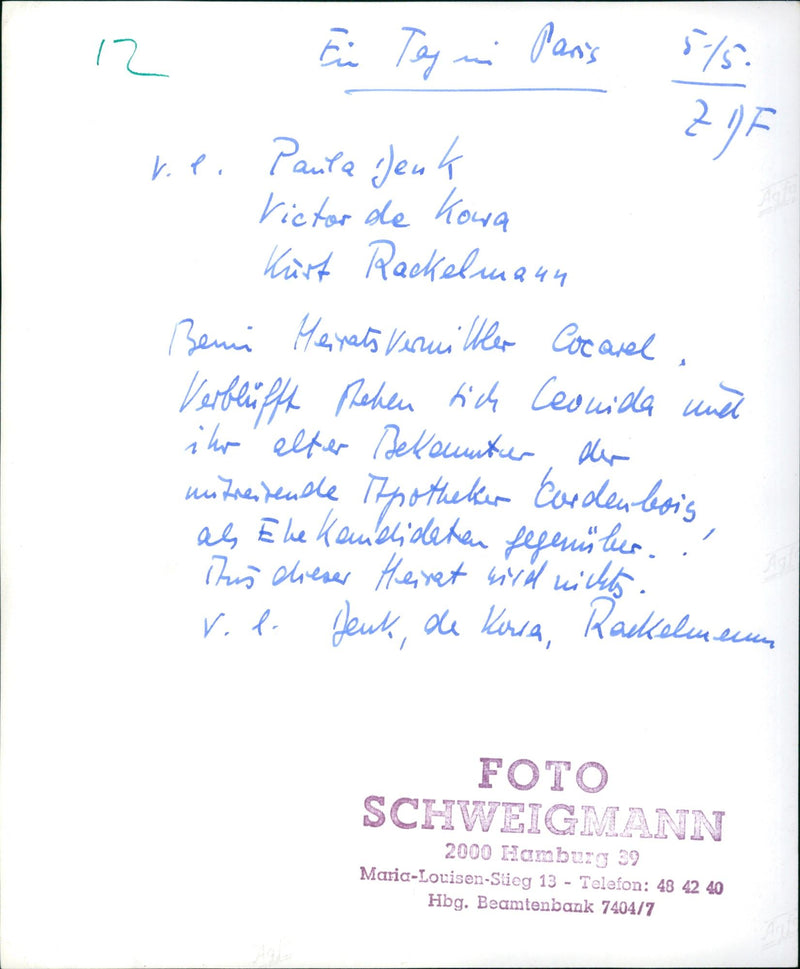 12
Ein Tag in Paris 5./5.
ZDF
v. l. Paula Denk
Victor de Kowa
Kurt Rackelmann
Beim Heiratsvermittler Cocarel.
Verblüfft stehen sich Leonida und
ihr alter Bekannter, der
mitreisende Apotheker Cordenbois,
als Ehekandidaten gegenüber. !
Aus dieser Heirat wird nichts.
v. l. Denk, de Kowa, Rackelmann
FOTO
SCHWEIGMANN
2000 Hamburg 39
Maria-Louisen-Stieg 13 - Telefon: 48 42 40
Hbg. Beamtenbank 7404/7
Agfa
Agfa
Agfa
Agfa